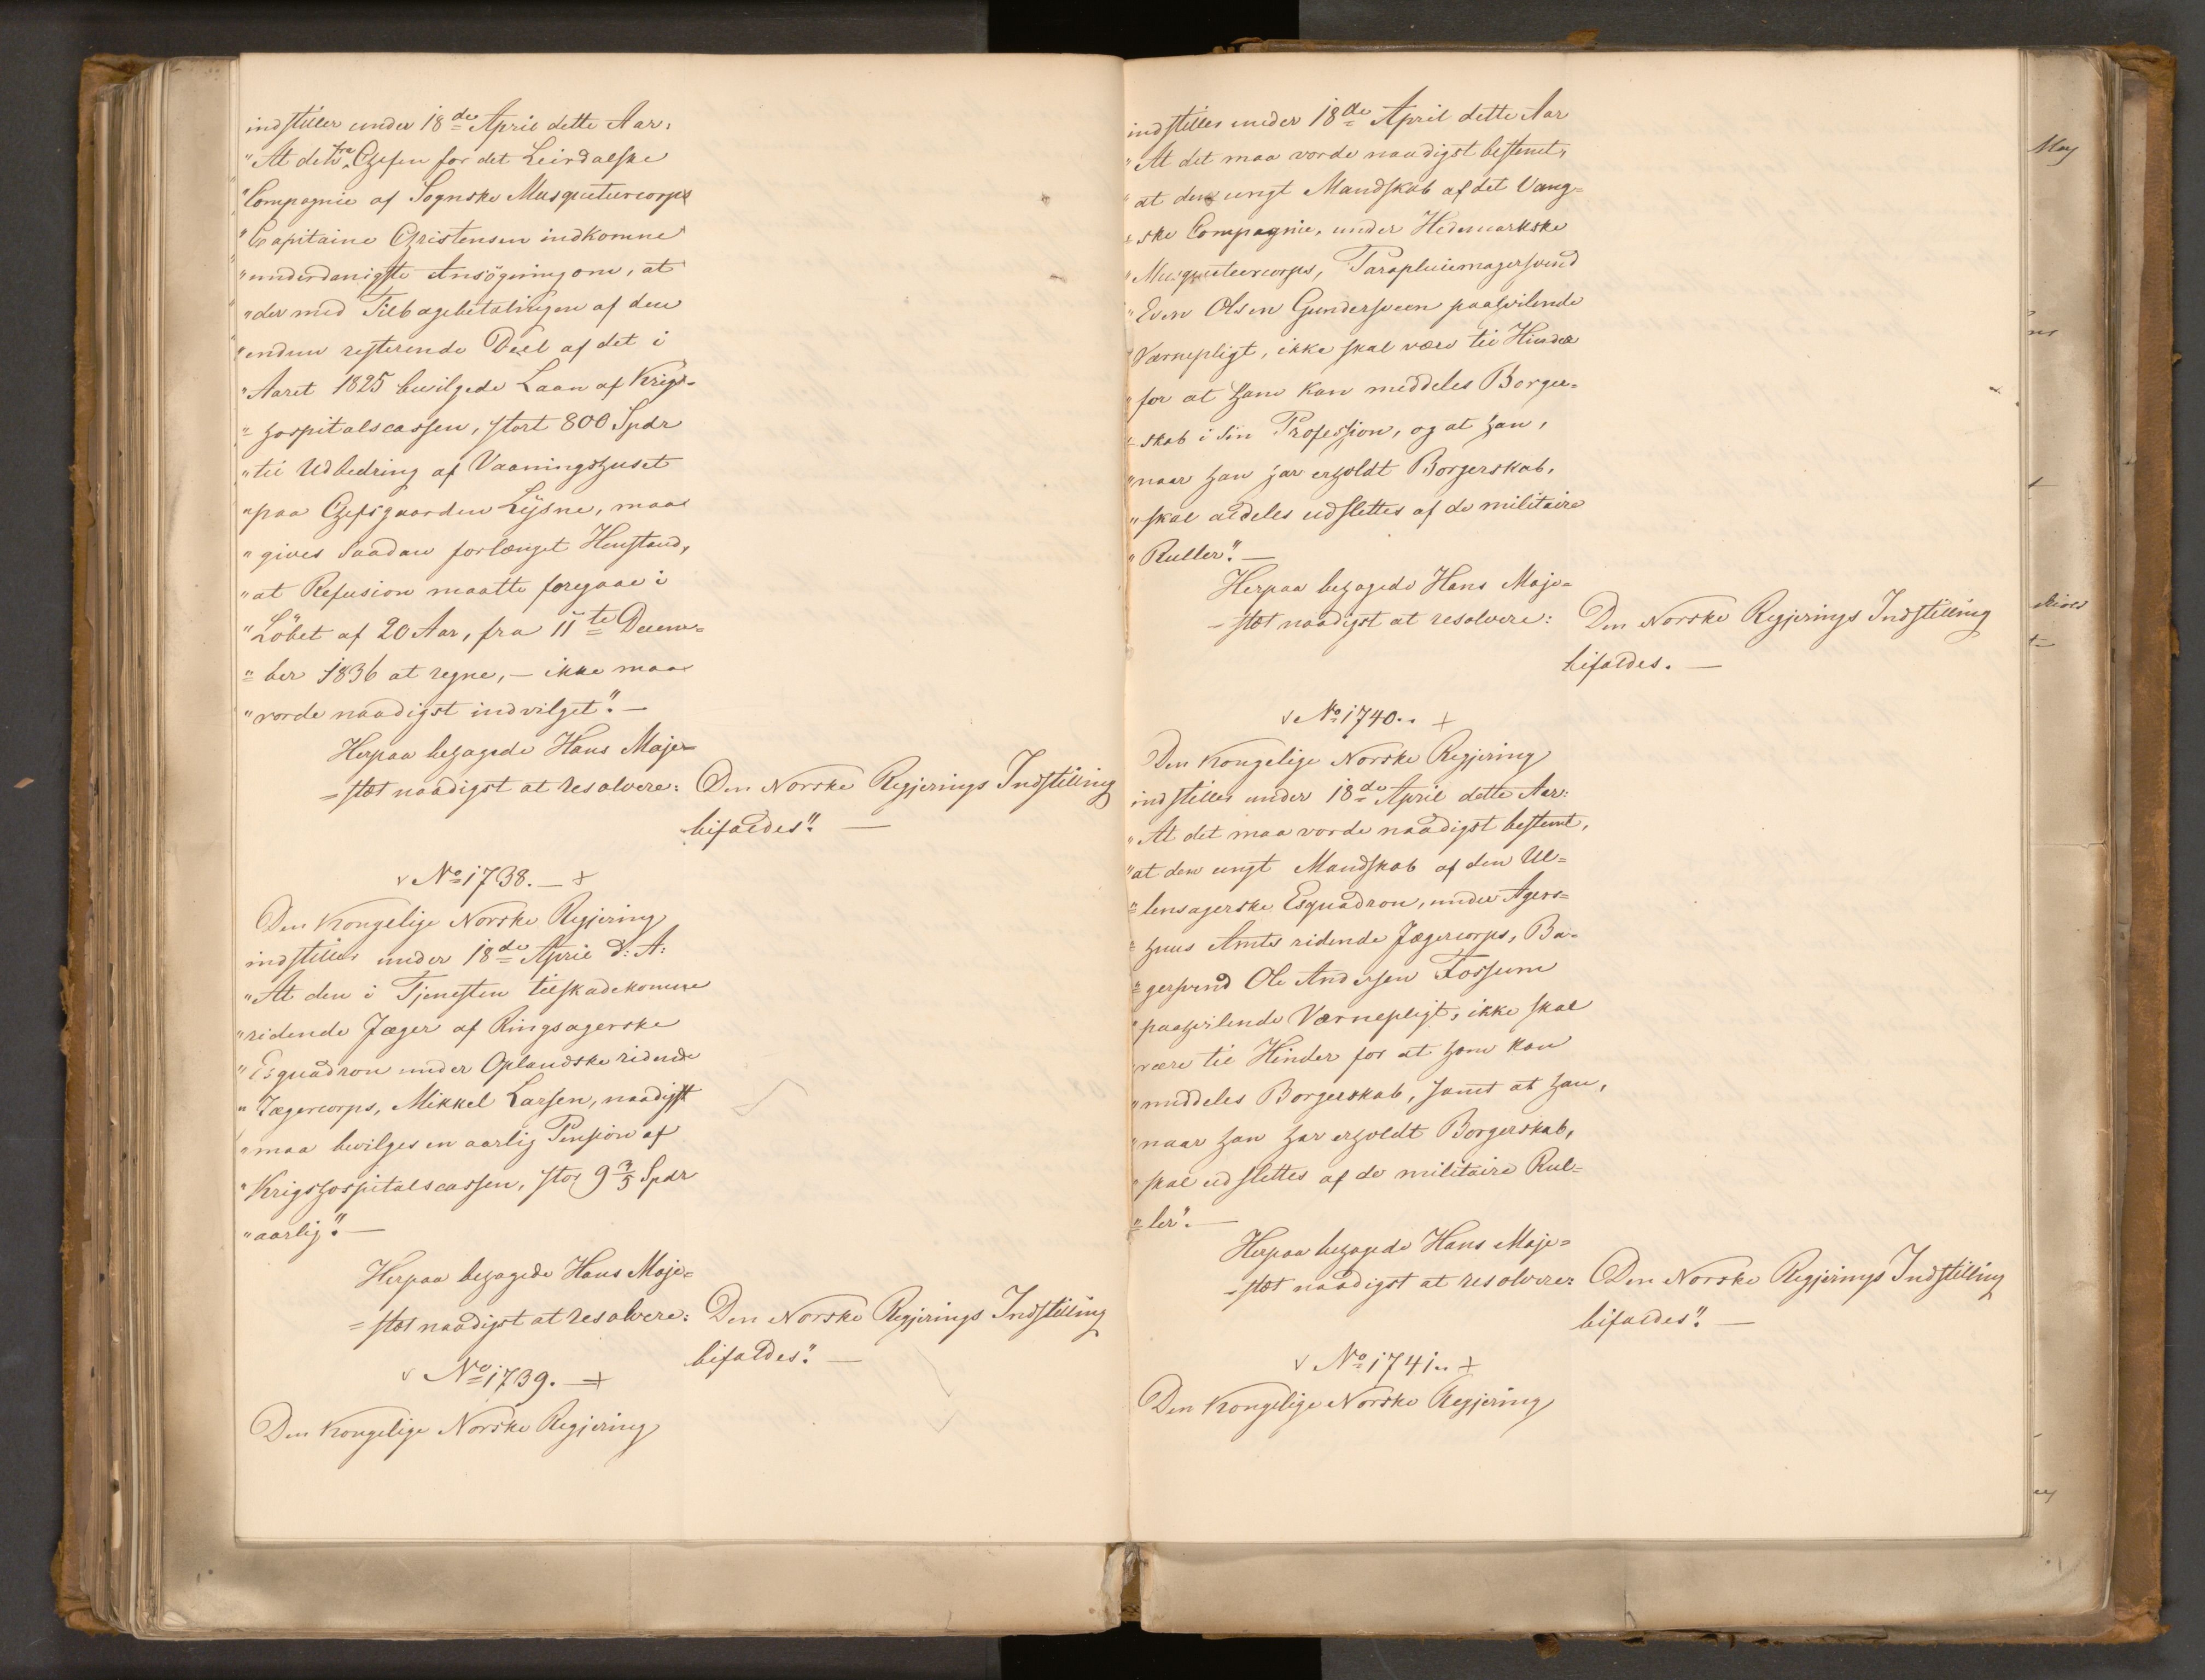 indstiller under 18de April dette Aar:
"At den fra Chefen for det Leirdalske
"Compagnie af Sognske Musqueteercorps
"Capitaine Christensen indkomne
"underdanigste Ansögning om, at
"der med Tilbagebetalingen af den
"endnu resterende Deel af det i
"Aaret 1825 bevilgede Laan af Krigs=
"=hospitalscassen, stort 800 Spdr
"til Udbedring af Vaaningshuset
"paa Chefsgaarden Lysne, maae
"gives saadan forlænget Henstand,
"at Refusion maatte foregaae i
"Löbet af 20 Aar, fra 11te Decem=
"=ber 1836 at regne, — ikke maae
"vorde naadigst indvilget". —
Herpaa behagede Hans Maje=
=stæt naadigst at resolvere: Den Norske Regjerings Indstilling
bifaldes". —
No 1738. — +
Den Kongelige Norske Regjering
indstiller under 18de April d: A:
"At den i Tjenesten tilskadekomne
"ridende Jæger af Ringsagerske
"Esquadron under Oplandske ridende
"Jægercorps, Mikkel Larsen, naadigst
"maa bevilges en aarlig Pension af
"Krigshospitalscassen, stor 9 3/5 Spdr
"aarlig". —
Herpaa behagede Hans Maje=
=stæt naadigst at resolvere: Den Norske Regjerings Indstilling
bifaldes". —
No 1739. — +
Den Kongelige Norske Regjering
indstiller under 18de April dette Aar
"At det maa vorde naadigst bestemt,
"at den ungt Mandskab af det Vang=
"=ske Compagnie, under Hedemarkske
"Musqueteercorps, Parapluiemagersvend
"Even Olsen Gundersveen paahvilende
"Værnepligt, ikke skal være til Hinder
"for at ham kan meddeles Borger=
"=skab i sin Profession, og at han,
"naar han har erholdt Borgerskab,
"skal aldeles udslettes af de militaire
"Ruller". —
Herpaa behagede Hans Maje=
=stæt naadigst at resolvere: Den Norske Regjerings Indstilling
bifaldes. —
No 1740. +
Den Kongelige Norske Regjering
indstiller under 18de April dette Aar:
"At det maa vorde naadigst bestemt,
"at den ungt Mandskab af den Ul=
"=lensagerske Esquadron, under Agers=
"=huus Amts ridende Jægercorps, Ba=
"=gersvend Ole Andersen Fossum
"paahvilende Værnepligt, ikke skal
"være til Hinder for at ham kan
"meddeles Borgerskab, samt at han,
"naar han har erholdt Borgerskab,
"skal udslettes af de militaire Rul=
"=ler". —
Herpaa behagede Hans Maje=
=stæt naadigst at resolvere: Den Norske Regjerings Indstilling
bifaldes". —
No 1741. +
Den Kongelige Norske Regjering